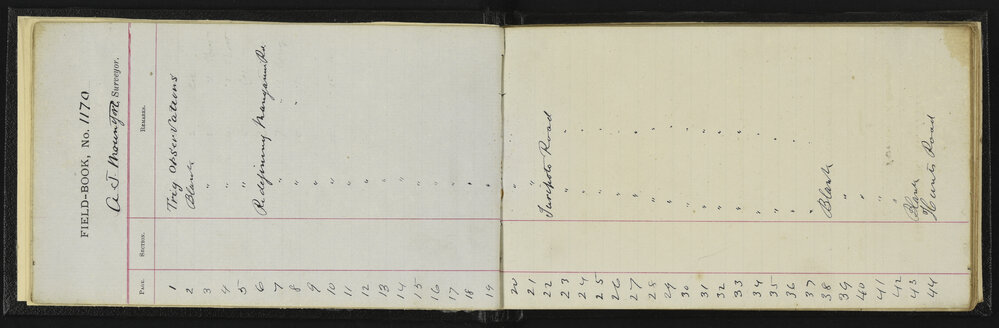 FIELD-BOOK, No. 1170
Surveyor.
PAGE. SECTION. REMARKS.
1 Trig Observations
2 Blank
3 "
4 "
5 "
6 Redefining Mangamu Rd.
7 " "
8 " "
9 "
10 "
11 "
12 "
13 "
14 "
15 "
16 "
17 "
18 "
19 "
20 "
21 "
22 Road
23 " "
24 " "
25 " "
26 " "
27 " "
28 " "
29 " "
30 " "
31 " "
32 " "
33 " "
34 " "
35 " "
36 "
37 "
38 Blank
39 "
40 "
41 "
42 "
43 Blank
44 Hunts Road